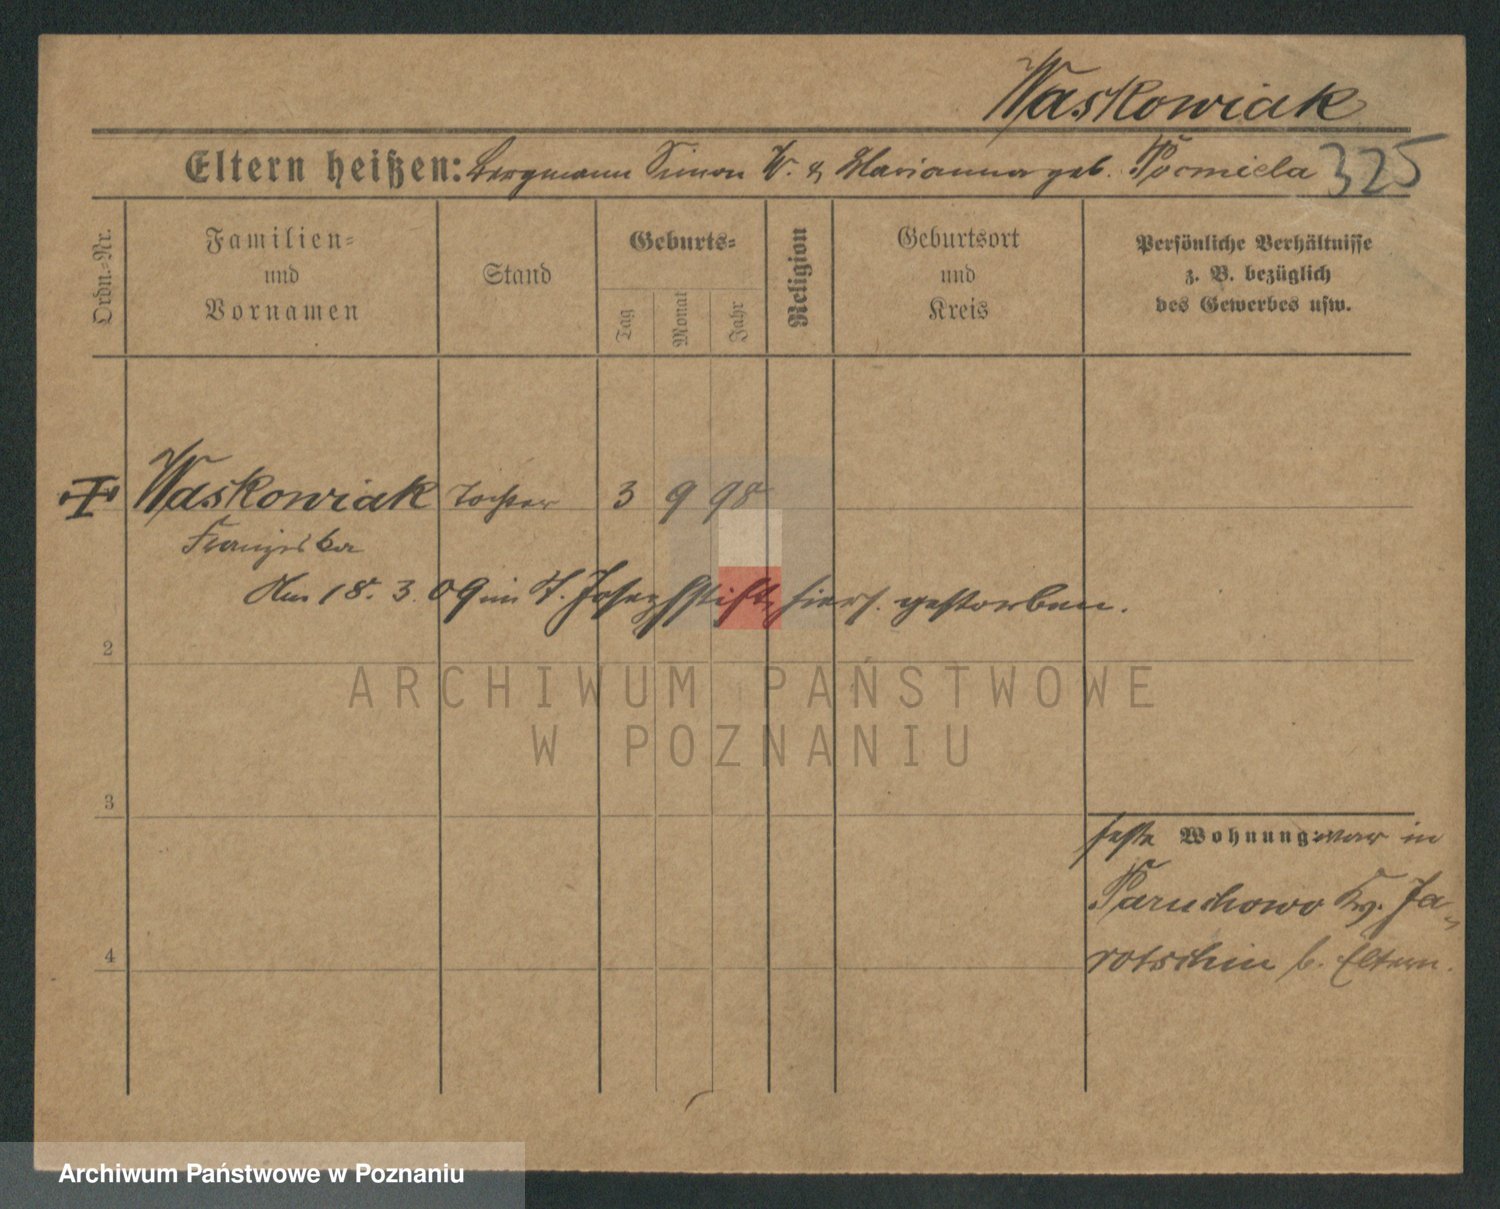 Waskowiak
Eltern heißen: Bergmann Simon W. & Marianna geb. Pocmiela 325
Ordn.=Nr.
Familien=
und
Vornamen
Stand
Geburts=
Tag
Monat
Jahr
Religion
Geburtsort
und
Kreis
Persönliche Verhältnisse
z. B. bezüglich
des Gewerbes usw.
Waskowiak Tochter 3 9 98
Franziska
Am 18. 3. 09 im St. Josephstift hiers. gestorben.
2
ARCHIWUM PAŃSTWOWE
W POZNANIU
3
feste Wohnung: war in
Paruchowo Kr. Ja-
4
rotschin b. Eltern.
Archiwum Państwowe w Poznaniu